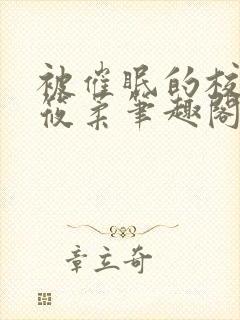 被催眠的校
筱柔笔趣阁
章立奇